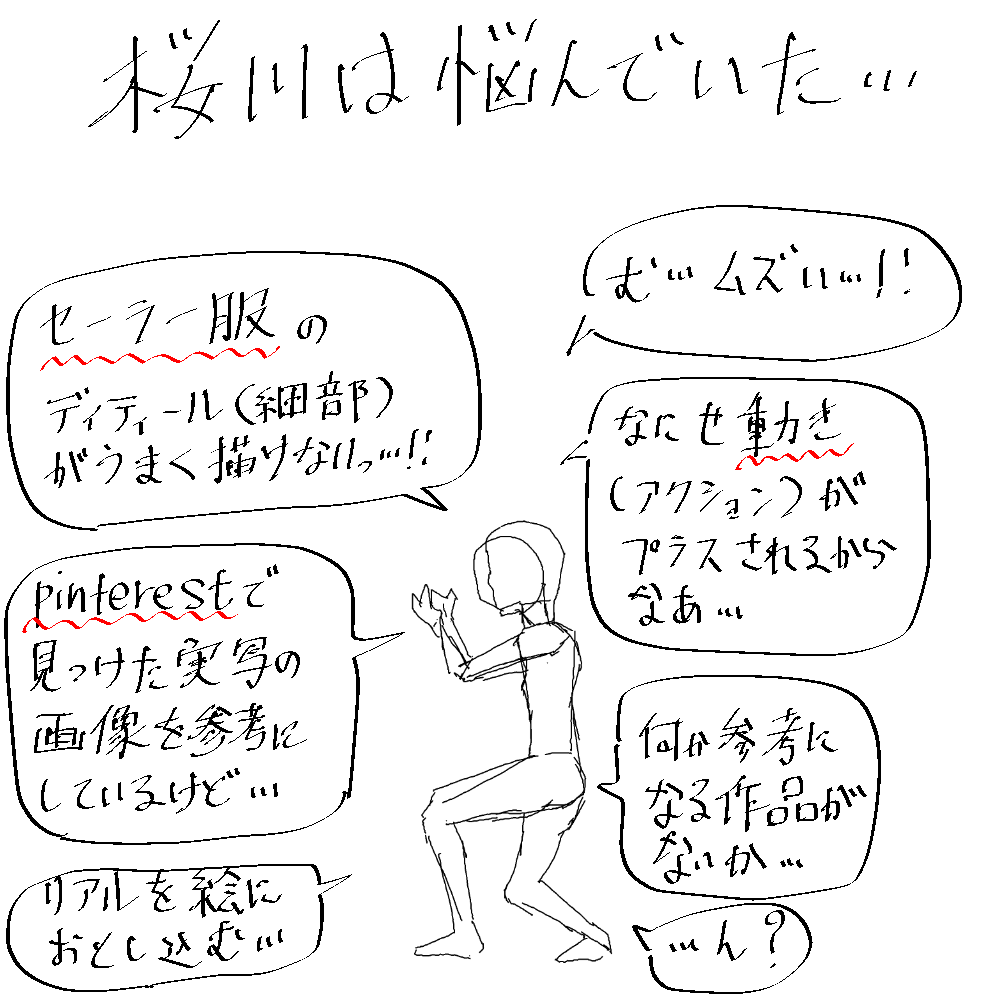 桜川は悩んでいた…
む…ムズい…!!
セーラー服の
ディティール(細部)
がうまく描けないっ…!!
なにせ動き
(アクション)が
プラスされるから
なあ…
pinterestで
見つけた実写の
画像を参考に
しているけど…
何か参考に
なる作品が
ないか…
リアルを絵に
おとし込む…
…ん?